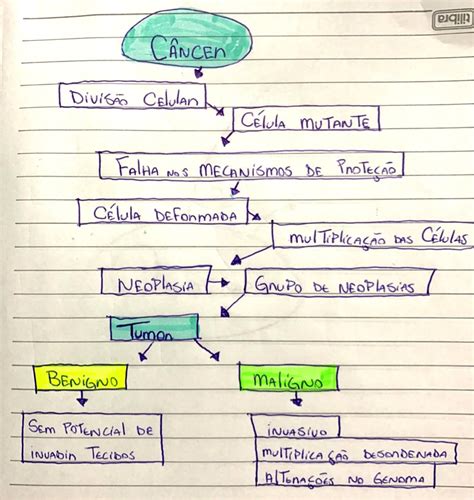 tilibra
Câncer
Divisão Celular
Célula mutante
Falha nos mecanismos de proteção
Célula deformada
multiplicação das células
Neoplasia
Grupo de neoplasias
Tumor
Benigno
Maligno
Sem potencial de
invadir tecidos
invasivo
multiplicação desordenada
Alterações no genoma